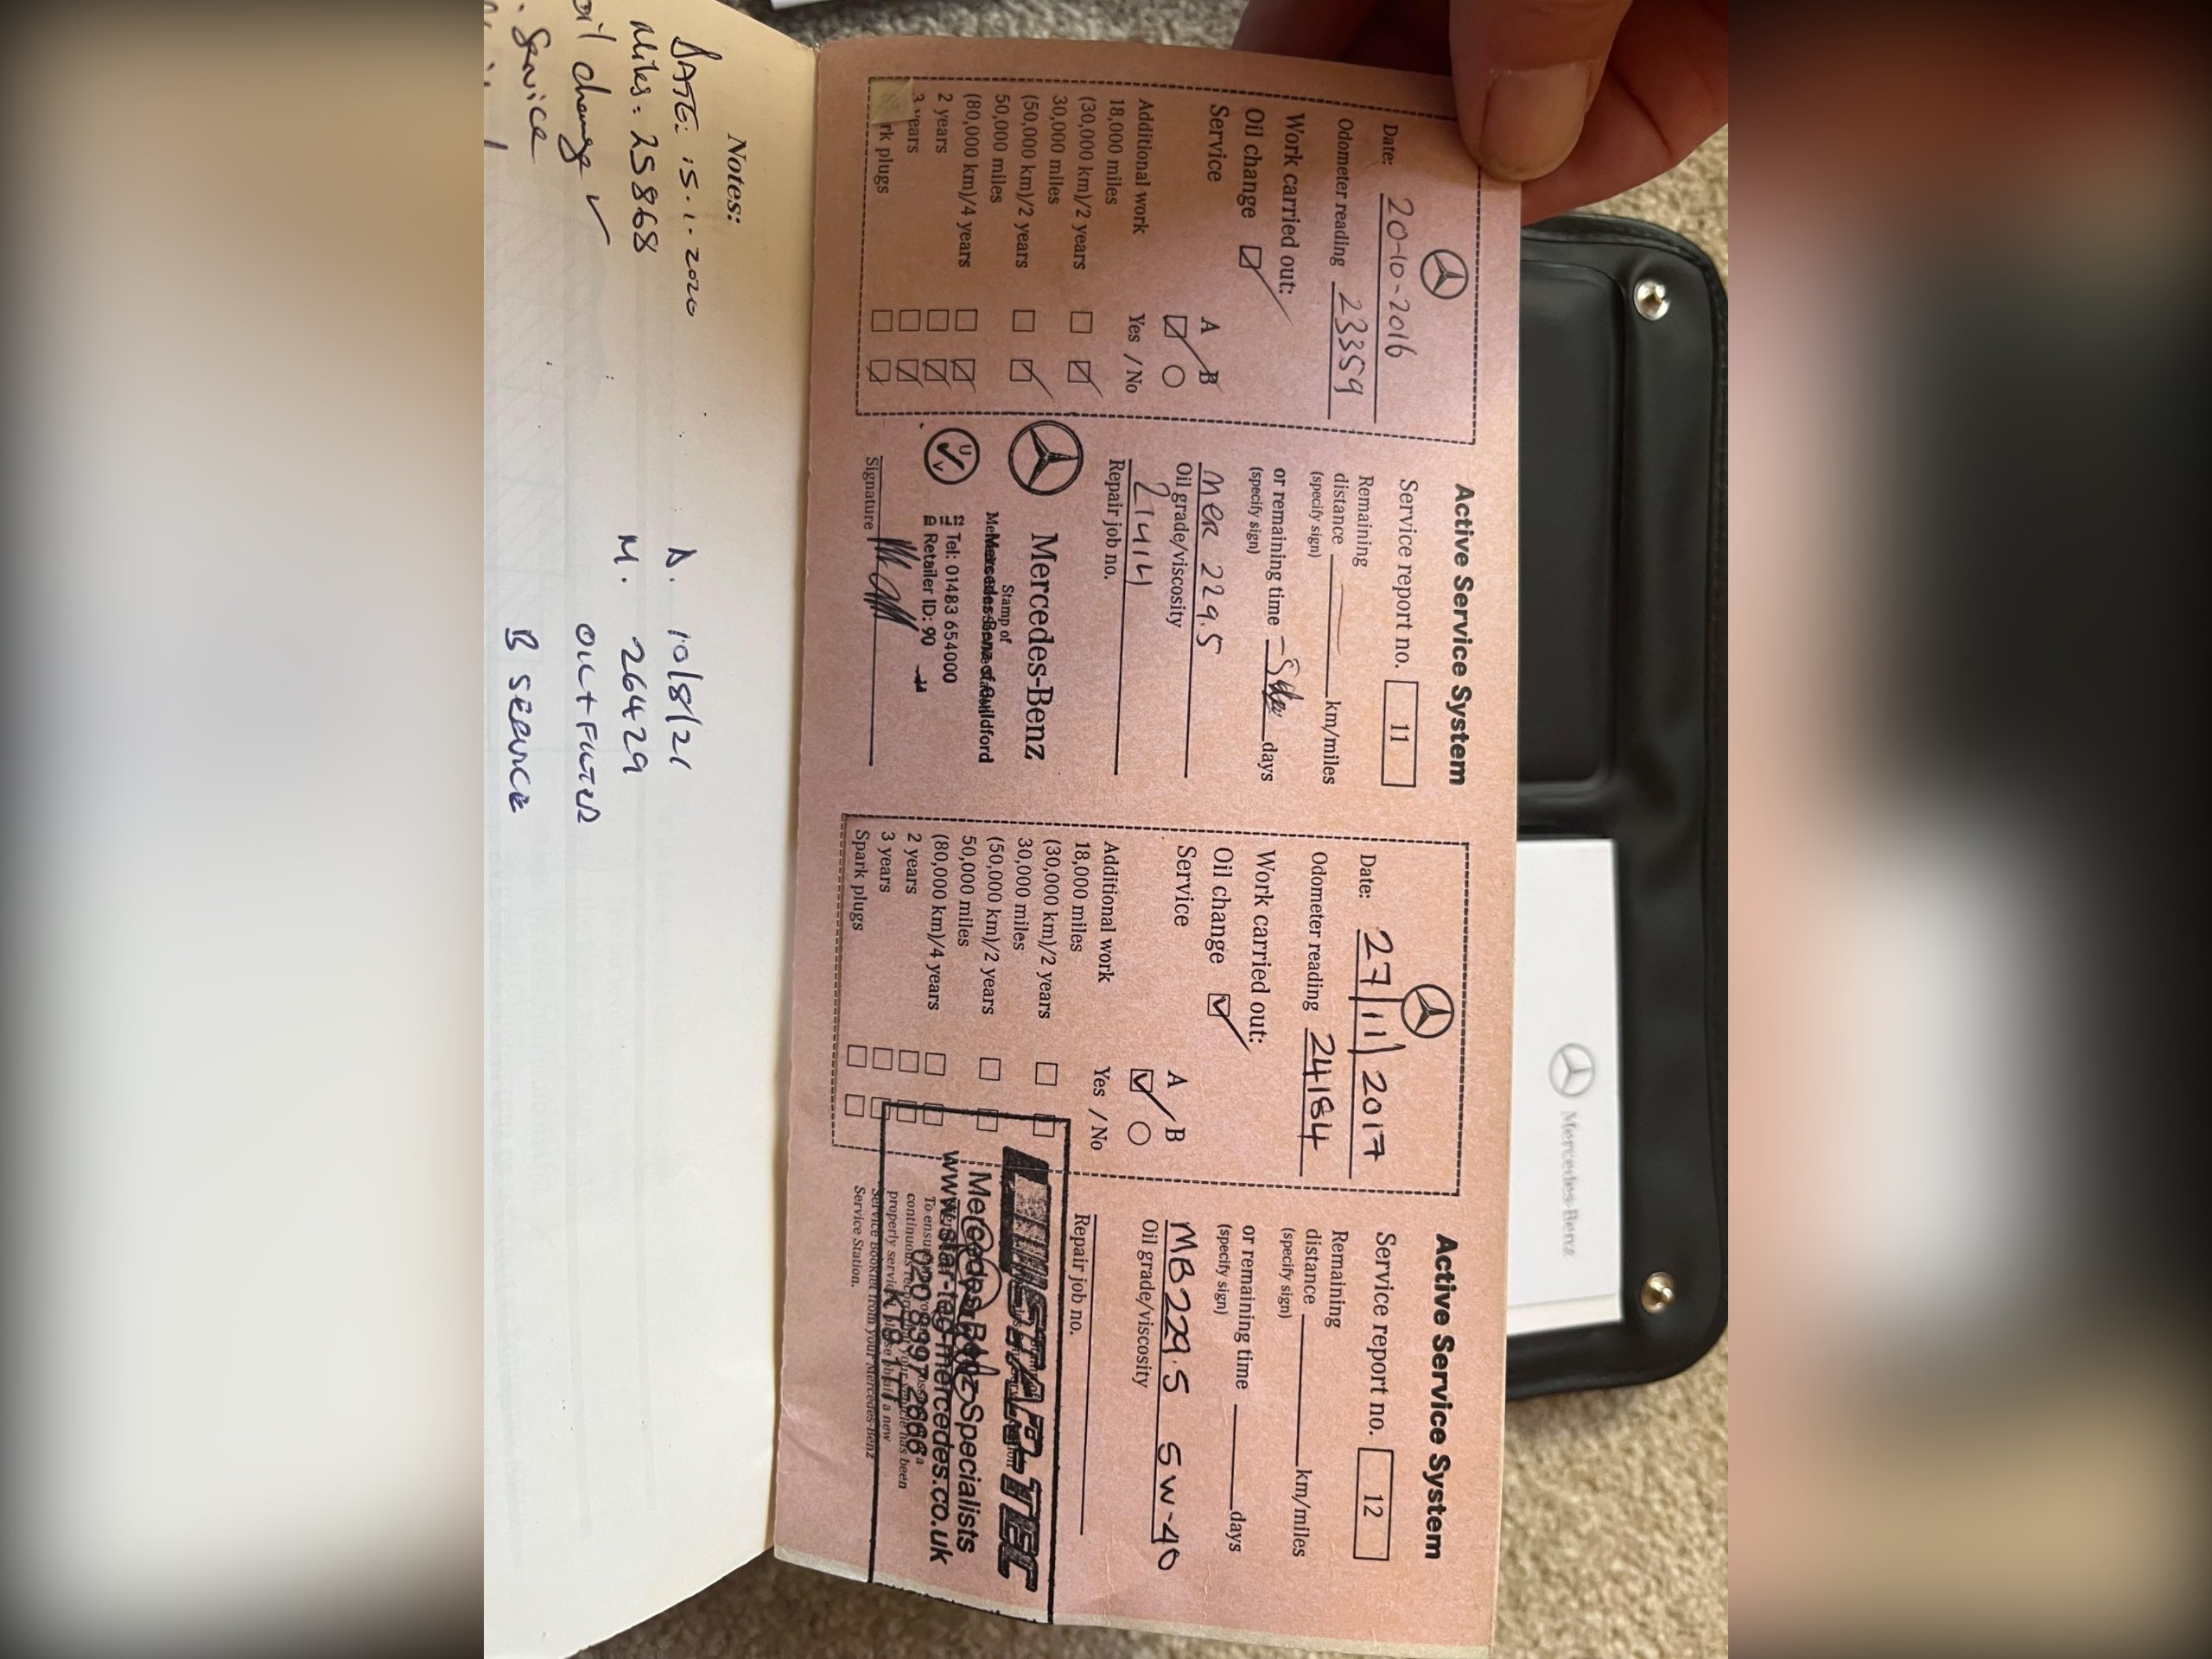 Active Service System
Date: 20-10-2016
Service report no. 11
Odometer reading 23359
Remaining
distance km/miles
(specify sign)
Work carried out:
or remaining time days
(specify sign)
Oil change
Service A B
MER 229.5
Oil grade/viscosity
21414
Repair job no.
Additional work Yes / No
18,000 miles
(30,000 km)/2 years
30,000 miles
(50,000 km)/2 years
50,000 miles
(80,000 km)/4 years
2 years
3 years
rk plugs
Mercedes-Benz
Stamp of
Tel: 01483 654000
Retailer ID: 90
Signature
Active Service System
Date: 27/11/2017
Service report no. 12
Odometer reading 24184
Remaining
distance km/miles
(specify sign)
Work carried out:
or remaining time days
(specify sign)
Oil change
Service A B
MB229.5 5W-40
Oil grade/viscosity
Repair job no.
Additional work Yes / No
18,000 miles
(30,000 km)/2 years
30,000 miles
(50,000 km)/2 years
50,000 miles
(80,000 km)/4 years
2 years
3 years
Spark plugs
STAR-TEC
Mercedes-Benz Specialists
www.star-tec-mercedes.co.uk
020 8397 2666
KT9 1
To ensure
continuous
properly
service booklet from your Mercedes-Benz
Service Station.
Notes:
DATE: 15.1.2020
Miles: 25868
oil change
Service
D. 10/8/21
M. 26429
OIL + FILTER
B SERVICE
Mercedes-Benz